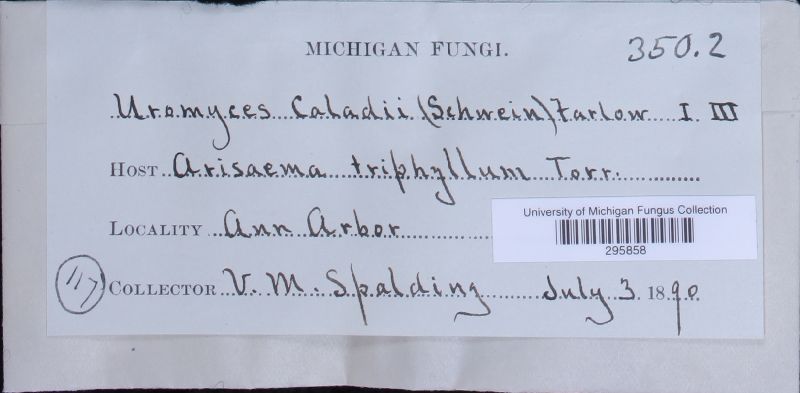 MICHIGAN FUNGI. 350.2
Uromyces Caladii (Schwein) Farlow I. III
HOST Arisaema triphyllum Torr.
LOCALITY Ann Arbor
University of Michigan Fungus Collection
295858
117 COLLECTOR V. M. Spalding July 3 1890